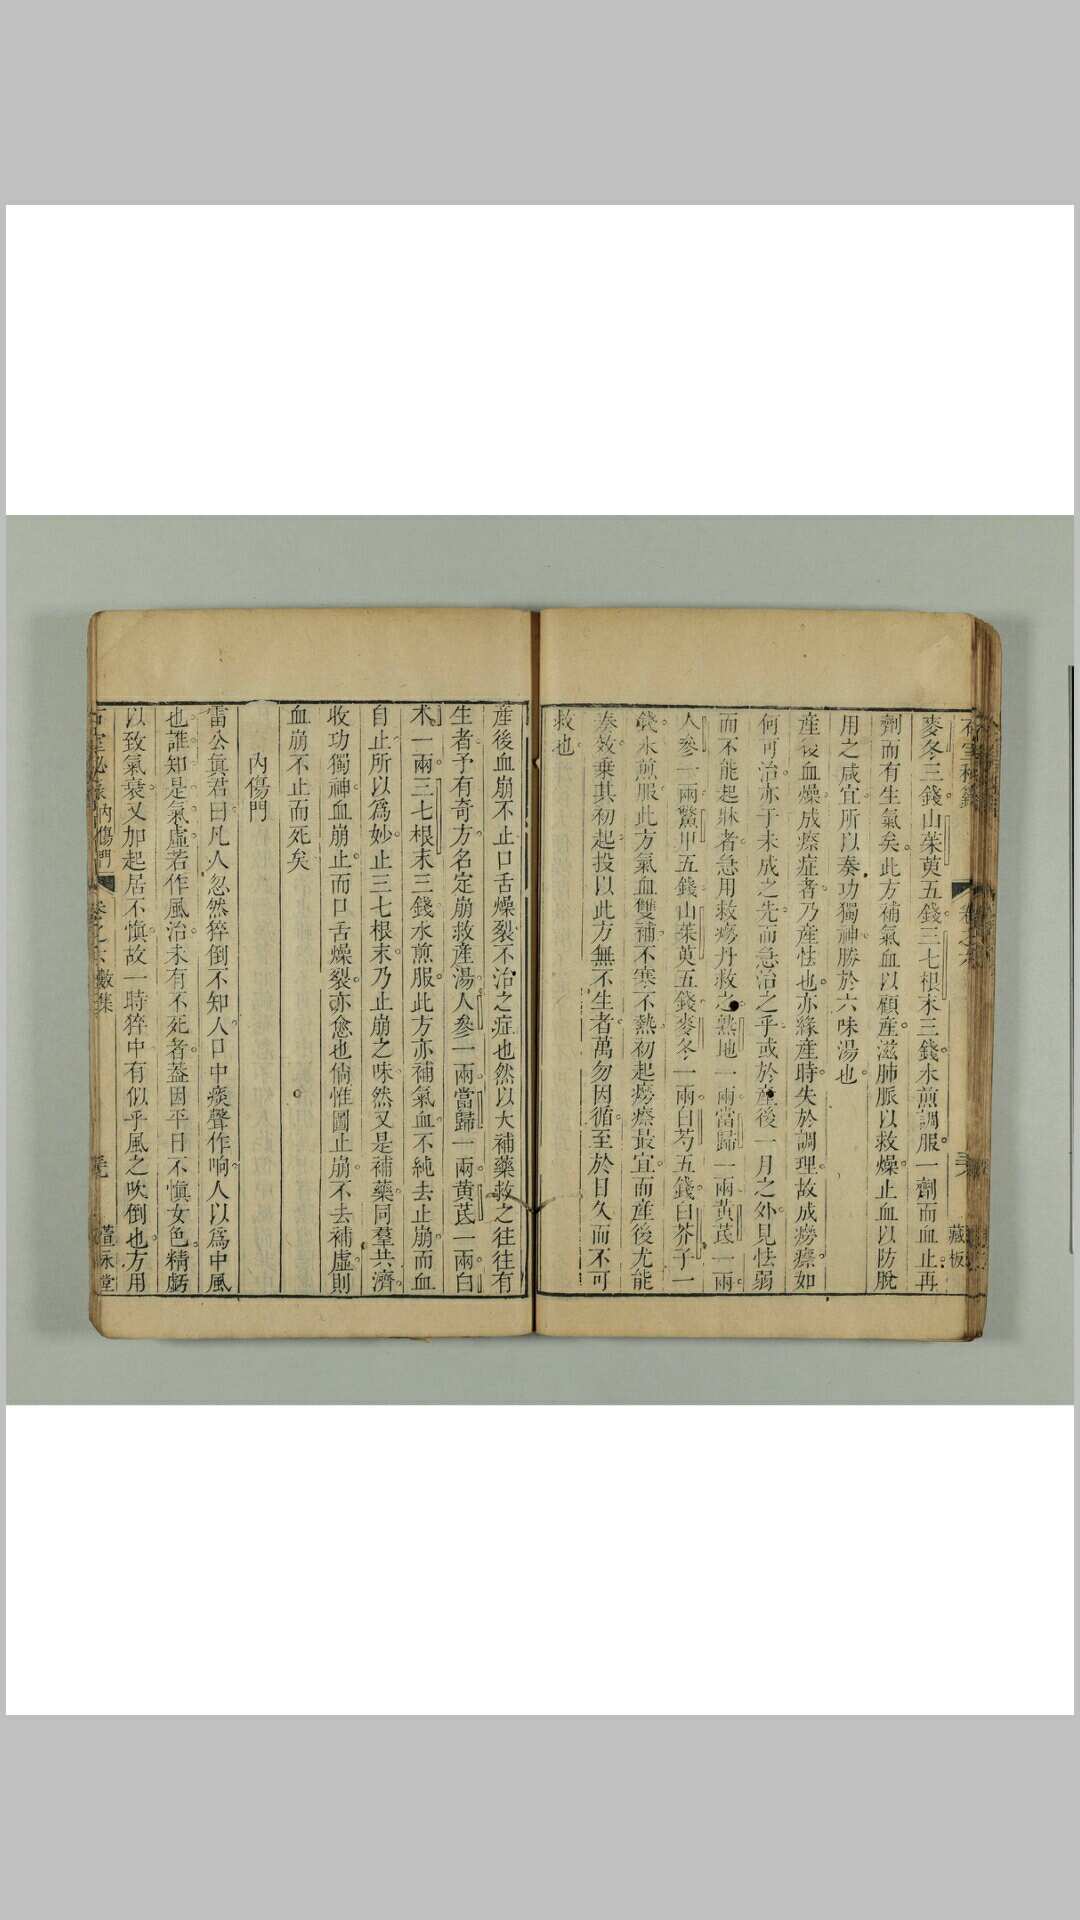 石室秘籙
卷之六
藏板
麥冬三錢山茱萸五錢三七根末三錢水煎調服一劑而血止再
劑而有生氣矣此方補氣血以顧産滋肺脈以救燥止血以防脫
用之咸宜所以奏功獨神勝於六味湯也
産後血燥成瘵症者乃産怯也亦緣産時失於調理故成癆瘵如
何可治亦于未成之先而急治之乎或於産後一月之外見怯弱
而不能起牀者急用救癆丹救之熟地一兩當歸一兩黃芪一兩
人參一兩鱉甲五錢山茱萸五錢麥冬一兩白芍五錢白芥子一
錢水煎服此方氣血雙補不寒不熱初起癆瘵最宜而産後尤能
奏效乗其初起投以此方無不生者萬勿因循至於日久而不可
救也
産後血崩不止口舌燥裂不治之症也然以大補藥救之往往有
生者予有奇方名定崩救産湯人參一兩當歸一兩黃芪一兩白
术一兩三七根末三錢水煎服此方亦補氣血不純去止崩而血
自止所以爲妙止三七根末乃止崩之味然又是補藥同羣共濟
收功獨神血崩止而口舌燥裂亦愈也倘惟圖止崩不去補虛則
血崩不止而死矣
內傷門
雷公真君曰凡人忽然猝倒不知人口中痰聲作响人以爲中風
也誰知是氣虛若作風治未有不死者蓋因平日不愼女色精虧
以致氣衰又加起居不愼故一時猝中有似乎風之吹倒也方用
石室秘籙
內傷門
卷之六
數集
萱永堂